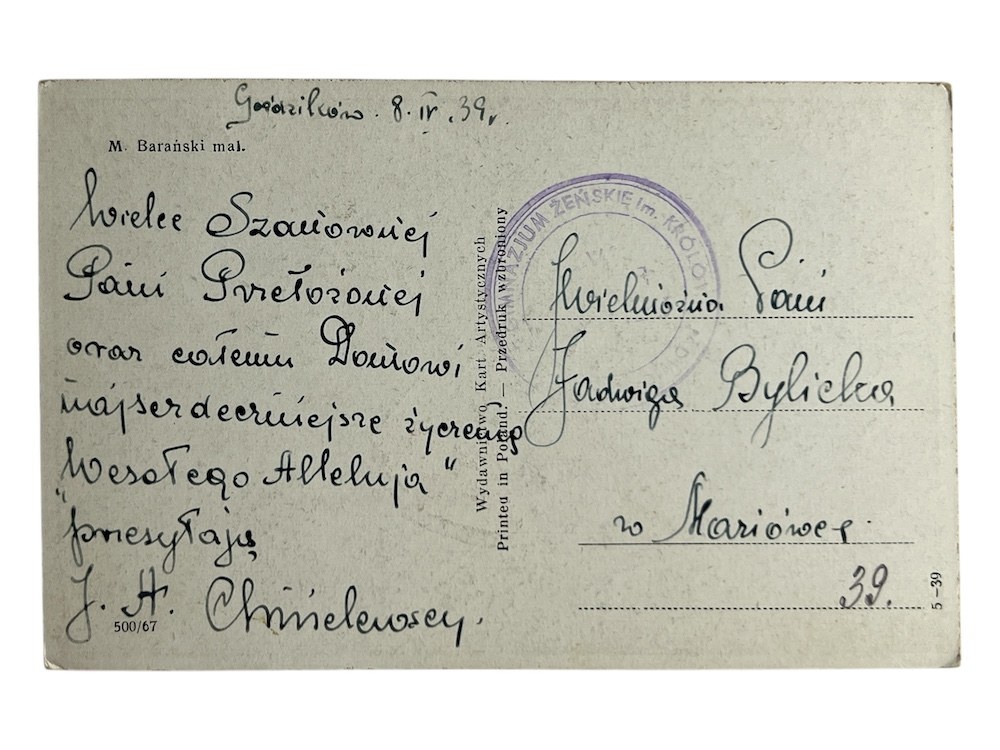 Goździków. 8.IV.39r.
M. Barański mal.
Wielce Szanownej
Pani Przełożonej
oraz całemu Domowi
najserdeczniejsze życzenia
"Wesołego Alleluja"
przesyłają
J. H. Chmielewscy.
500/67
Wydawnictwo Kart Artystycznych
Printed in Poland. — Przedruk wzbroniony
GIMNAZJUM ŻEŃSKIE im. KRÓLOW
Wielmożna Pani
Jadwiga Bylicka
w Mariówce.
39.
5-39